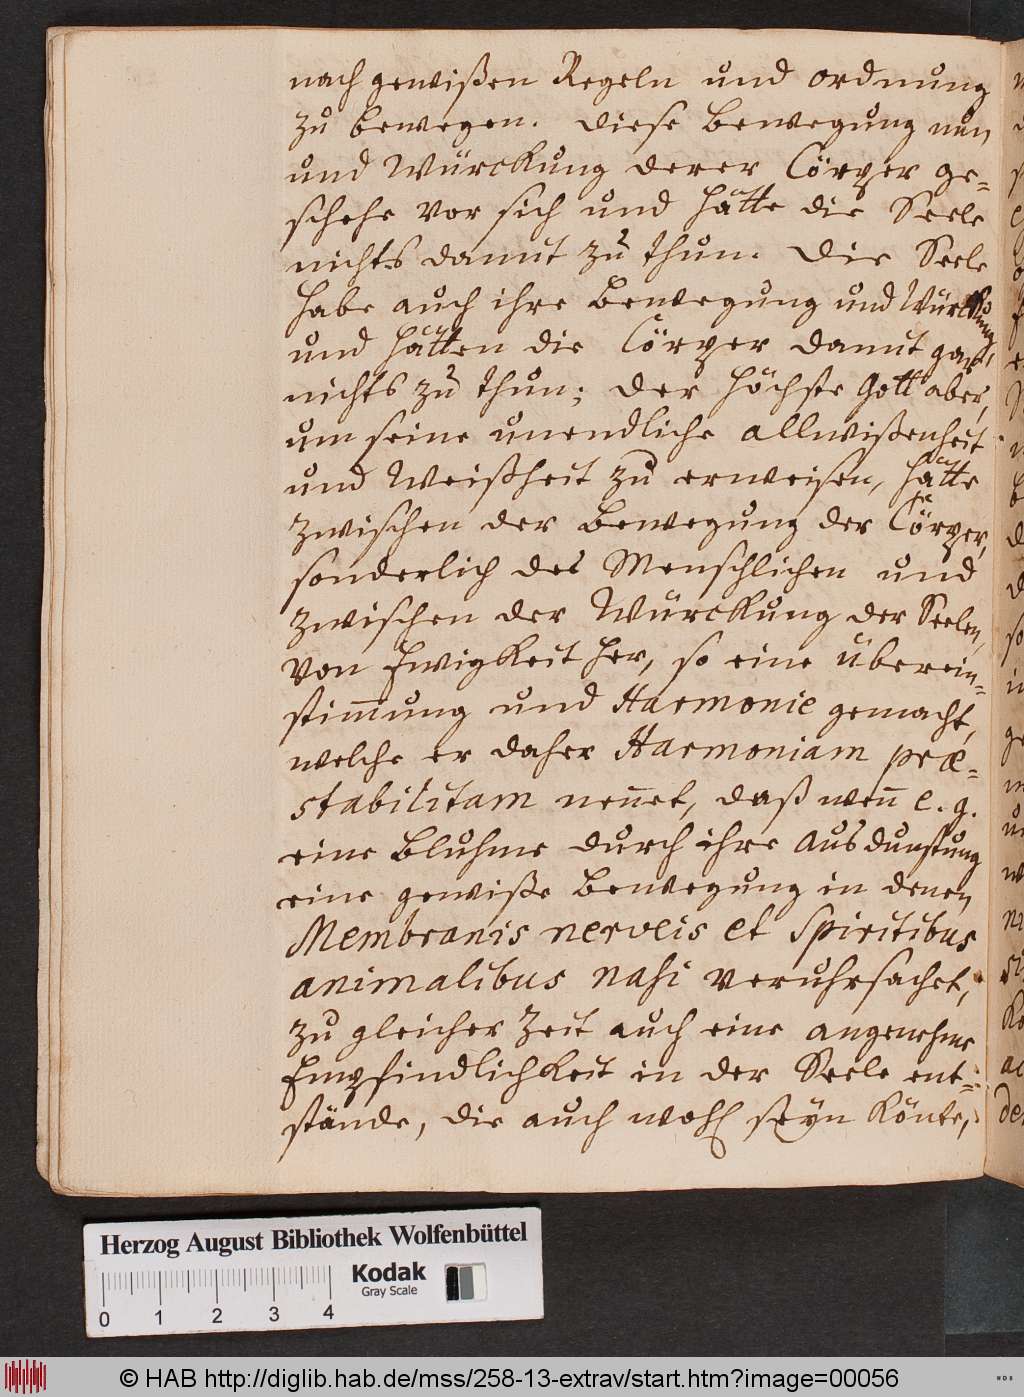 nach gewißen Regeln und ordnung
zu bewegen. Diese bewegung nun,
und Würckung derer Cörper ge=
schehe vor sich und hätte die Seele
nichts damit zu thun. Die Seele
habe auch ihre bewegung und Würckung,
und hätten die Cörper damit gar
nichts zu thun; der höchste Gott aber,
um seine unendliche allwißenheit
und Weißheit zu erweisen, hätte
zwischen der bewegung der Cörper,
sonderlich des Menschlichen und
zwischen der Würckung der Seelen,
von Ewigkeit her, so eine überein=
stim̅ung und Harmonie gemacht,
welche er daher Harmoniam præ=
stabilitam nen̅et, daß wen̅ e. g.
eine Bluhme durch ihre Ausdunstung
eine gewiße bewegung in denen
Membranis nerveis et Spiritibus
animalibus nasi veruhrsachet,
zu gleicher Zeit auch eine angenehme
Empfindlichkeit in der Seele ent=
stände, die auch wohl seyn könte,
Herzog August Bibliothek Wolfenbüttel
Kodak
Gray Scale
0 1 2 3 4
© HAB http://diglib.hab.de/mss/258-13-extrav/start.htm?image=00056